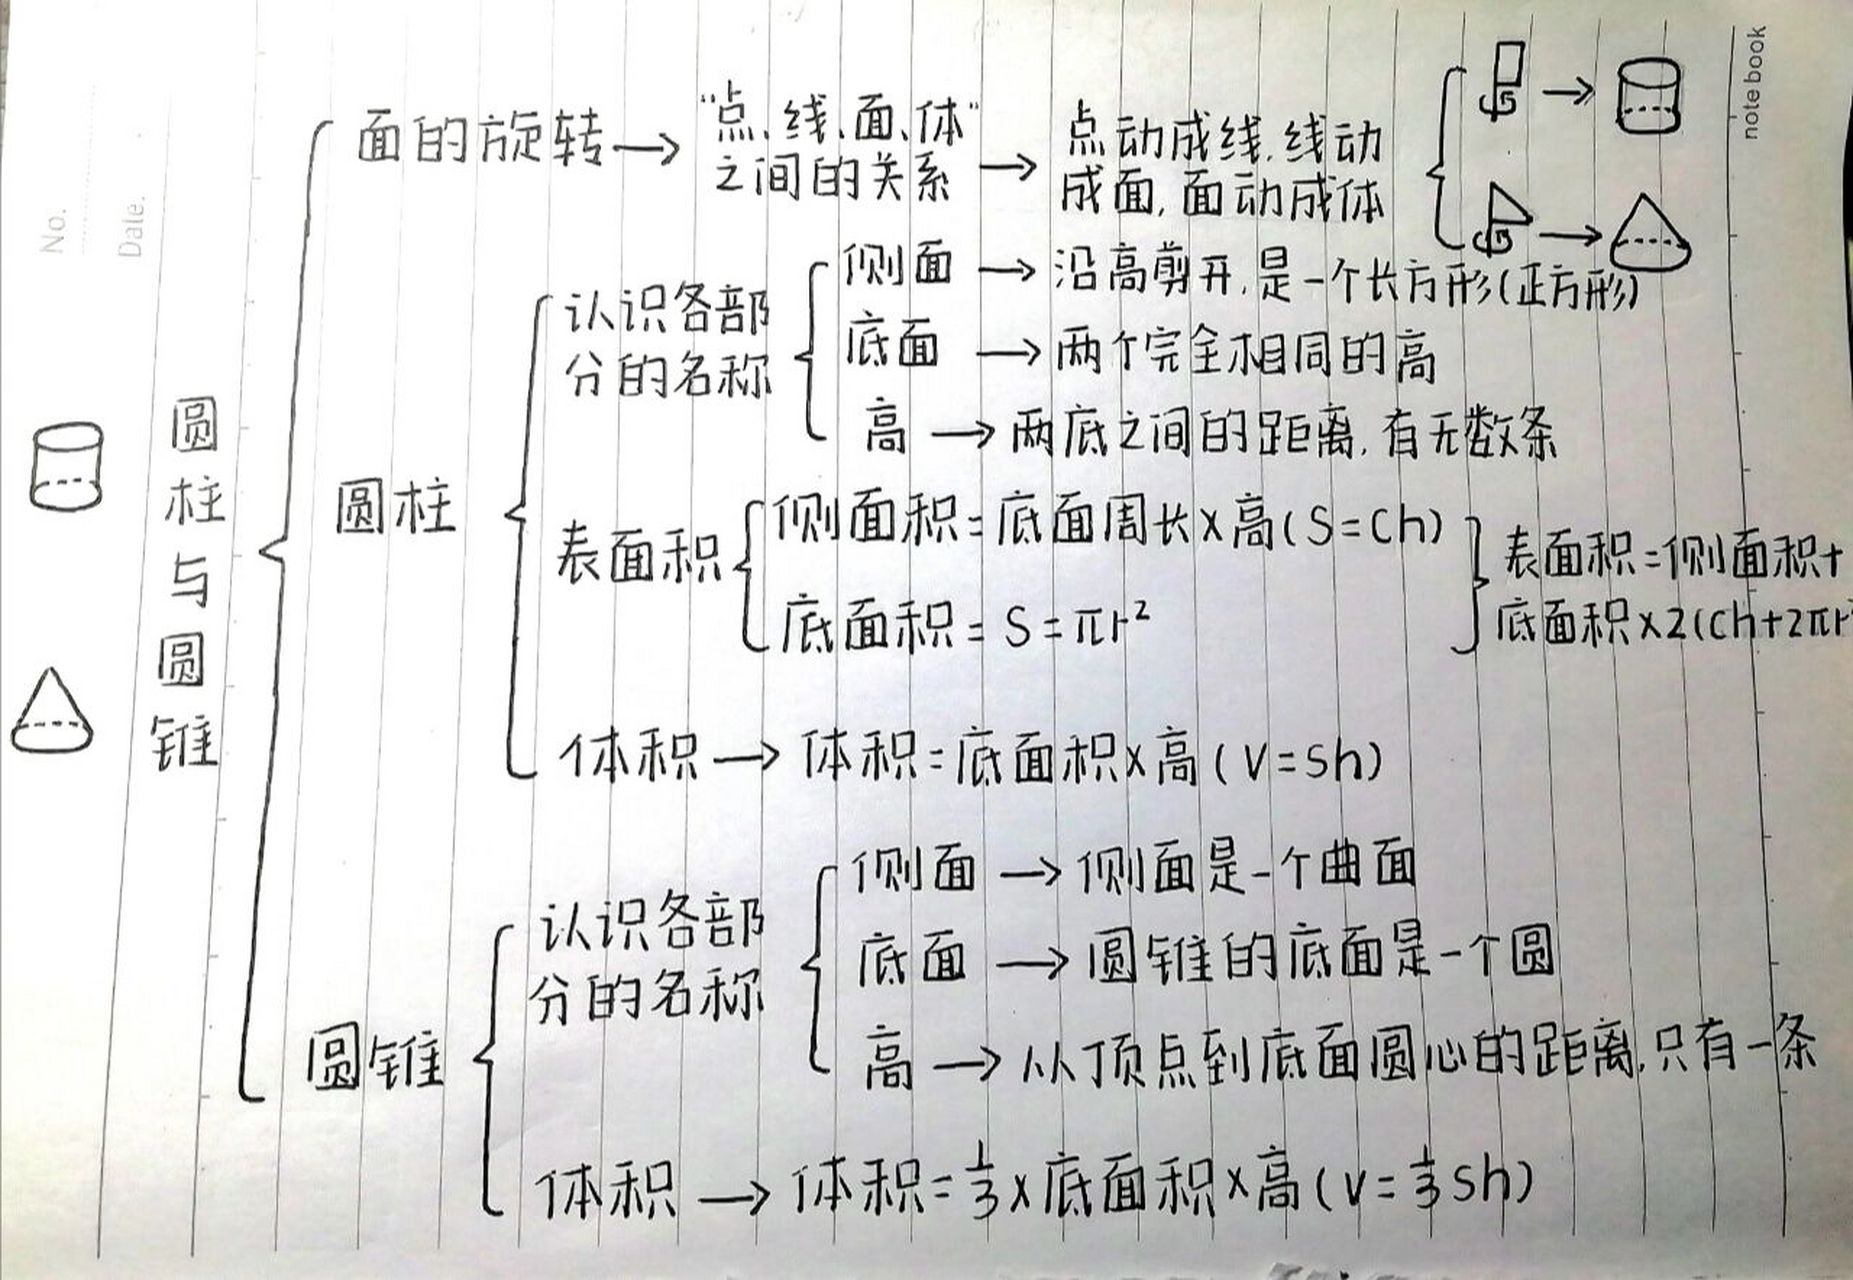 No.
Date.
notebook
圆柱与圆锥
面的旋转→"点、线、面、体"
之间的关系→点动成线,线动
成面,面动成体
圆柱
认识各部
分的名称
侧面→沿高剪开,是一个长方形(正方形)
底面→两个完全相同的高
高→两底之间的距离,有无数条
表面积
侧面积=底面周长×高(S=Ch)
底面积=S=πr²
表面积=侧面积+
底面积×2(Ch+2πr²
体积→体积=底面积×高(V=Sh)
圆锥
认识各部
分的名称
侧面→侧面是一个曲面
底面→圆锥的底面是一个圆
高→从顶点到底面圆心的距离,只有一条
体积→体积=1/3×底面积×高(V=1/3Sh)